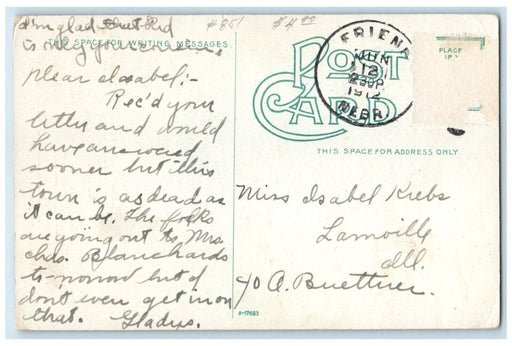 I'm glad that Red
is
THIS SPACE FOR WRITING MESSAGES
#851
$4.00
Dear Isabel:-
Rec'd your
letter and would
have answered
sooner but this
town is as dead as
it can be. The folks
are going out to Mrs
Chas. Blanchards
to-morrow but I
dont even get in on
that. Gladys.
POST CARD
FRIEND
JUN
12
1912
NEBR.
PLACE
THIS SPACE FOR ADDRESS ONLY
Miss Isabel Krebs
Lamoille
Ill.
c/o A. Buettner.
A-17683